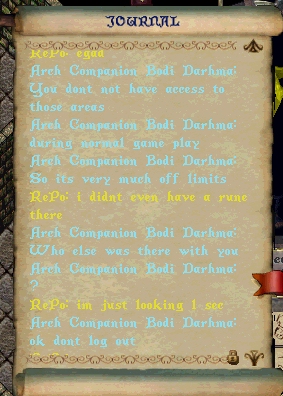 JOURNAL
RePo: egad
Arch Companion Bodi Darhma:
You dont not have access to
those areas
Arch Companion Bodi Darhma:
during normal game play
Arch Companion Bodi Darhma:
So its very much off limits
RePo: i didnt even have a rune
there
Arch Companion Bodi Darhma:
Who else was there with you
Arch Companion Bodi Darhma:
?
RePo: im just looking I see
Arch Companion Bodi Darhma:
ok dont log out